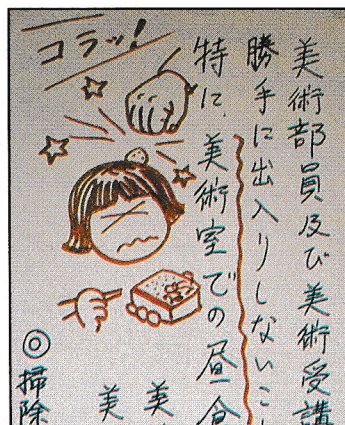 美術部員及び美術受講
勝手に出入りしないこと
特に、美術室での昼食
コラッ!
美
美
◎掃除